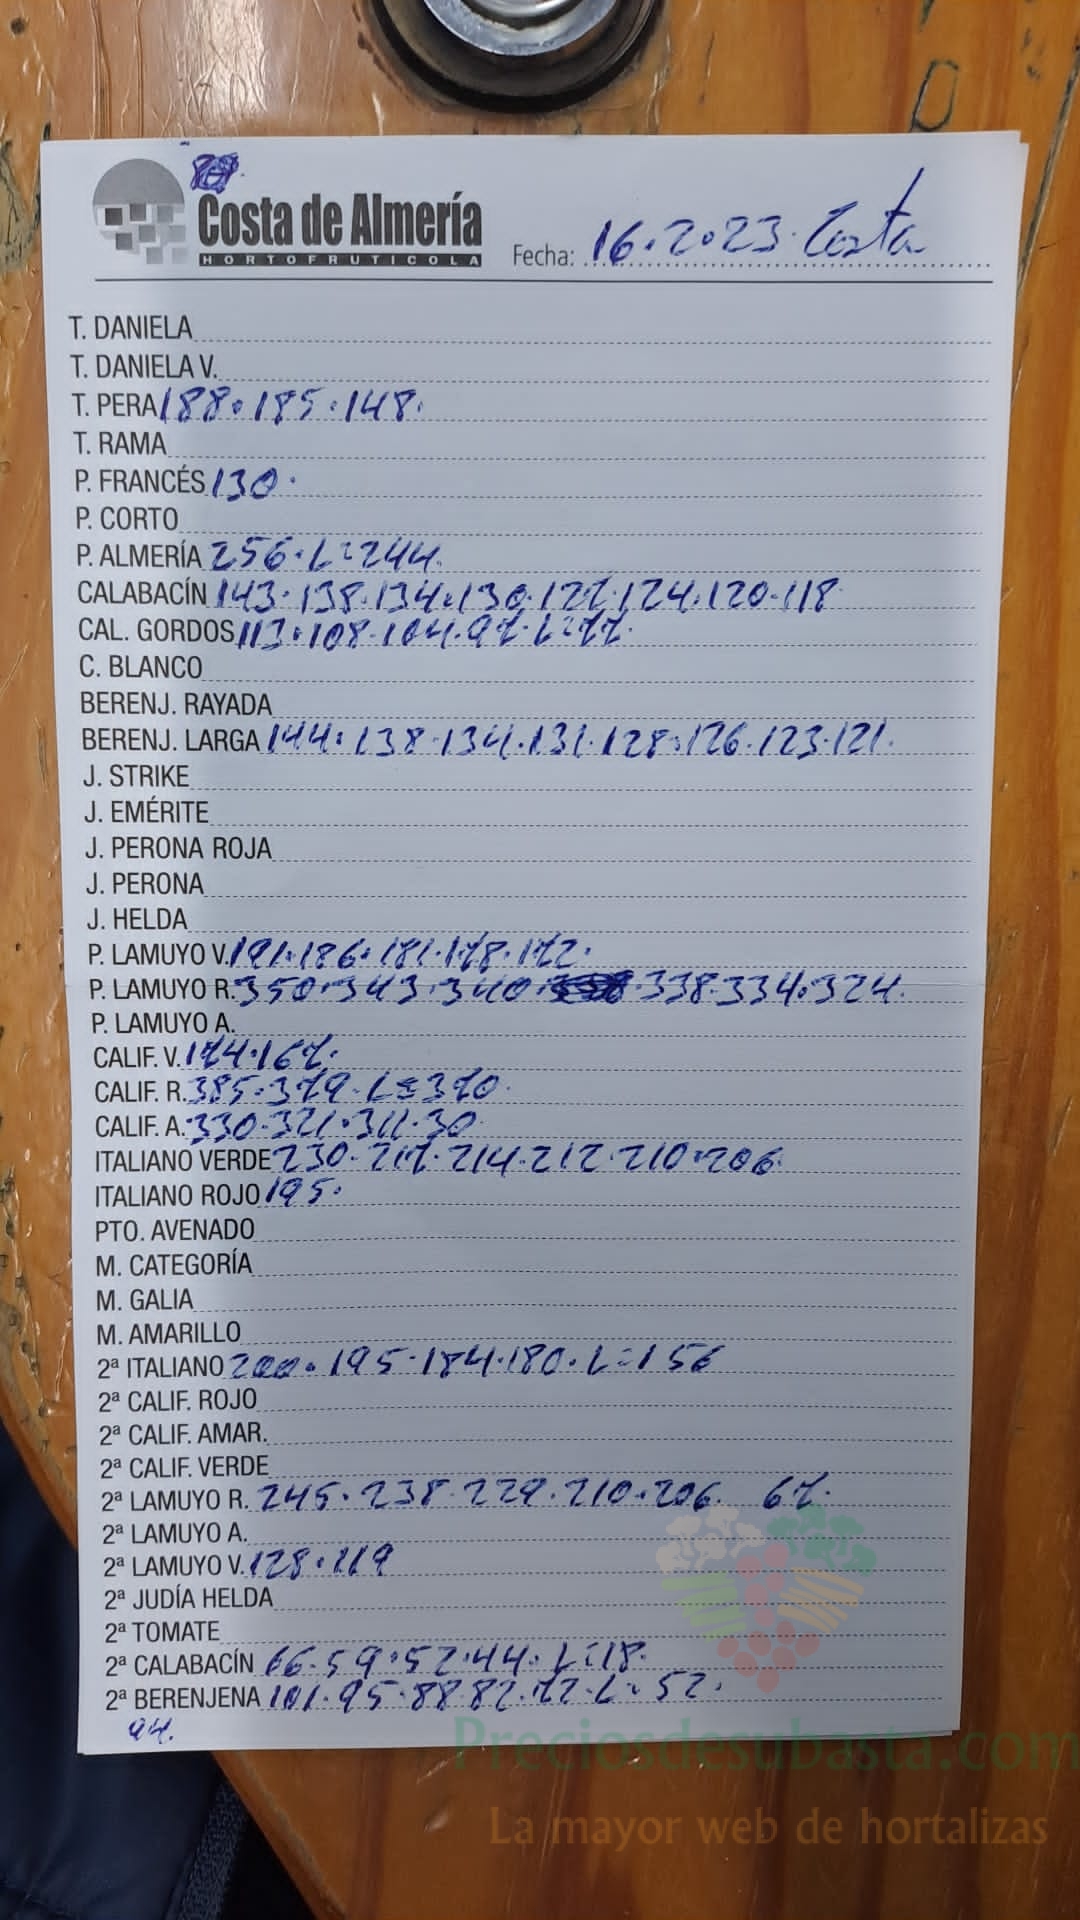 Costa de Almería
HORTOFRUTICOLA
Fecha: 16.2.23. Costa
T. DANIELA
T. DANIELA V.
T. PERA 188.185.148.
T. RAMA
P. FRANCÉS 130.
P. CORTO
P. ALMERÍA 256. L=244.
CALABACÍN 143.138.134.130.127.124.120.118
CAL. GORDOS 113.108.104.97. L=77.
C. BLANCO
BERENJ. RAYADA
BERENJ. LARGA 144.138.134.131.128.126.123.121.
J. STRIKE
J. EMÉRITE
J. PERONA ROJA
J. PERONA
J. HELDA
P. LAMUYO V. 191.186.181.178.172.
P. LAMUYO R. 350.343.340.338.334.324.
P. LAMUYO A.
CALIF. V. 174.167.
CALIF. R. 385.379. L=370.
CALIF. A. 330.321.311.30.
ITALIANO VERDE 230.217.214.212.210.206.
ITALIANO ROJO 195.
PTO. AVENADO
M. CATEGORÍA
M. GALIA
M. AMARILLO
2ª ITALIANO 200.195.184.180. L=156
2ª CALIF. ROJO
2ª CALIF. AMAR.
2ª CALIF. VERDE
2ª LAMUYO R. 245.238.229.210.206. 67.
2ª LAMUYO A.
2ª LAMUYO V. 128.119
2ª JUDÍA HELDA
2ª TOMATE
2ª CALABACÍN 66.59.52.44. L=18.
2ª BERENJENA 101.95.88.82.72. L=52.
94.
Preciosdesubasta.com
La mayor web de hortalizas